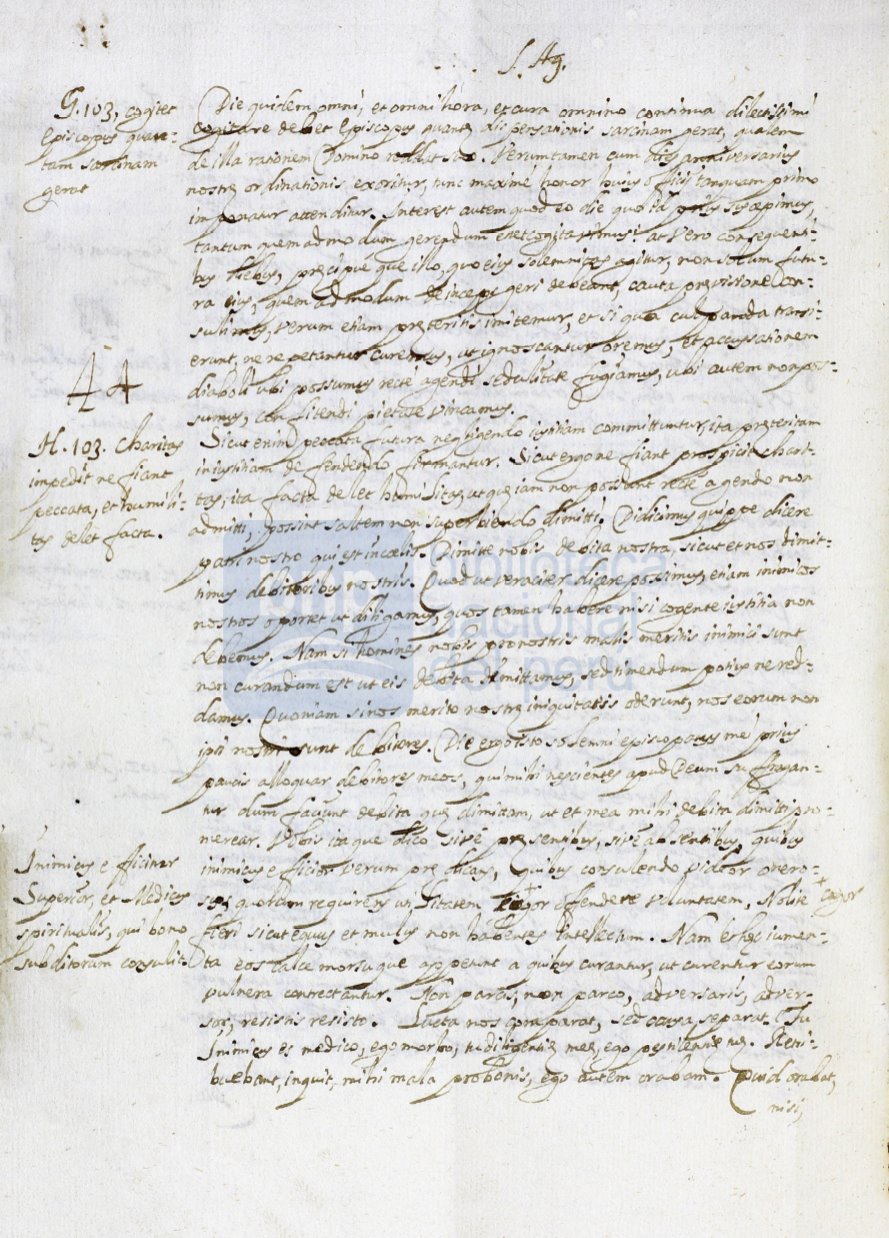 S. Ag.
G. 103, cogitet
Episcopus quan-
tam sarcinam
gerat
Die quidem omni, et omni hora, et cura omnino continua dilectissimi
cogitare debet Episcopus quantę dispensationis sarcinam gerat, qualem
de illa rationem Domino reddat suo. Verumtamen cum dies anniversarius
nostrę ordinationis exoritur, tunc maximè honor huius officii tanquam primo
imponatur attenditur. Interest autem quod eo die quo id prius suscepimus,
tantum quemadmodum gerendum esset cogitavimus: at vero consequenti-
bus diebus, pręcipuè que illo, quo eius solemnitas agitur, non solum futu-
ra eius, quemadmodum deinceps geri debeant cauta pręvisione con-
sulimus, verum etiam pręteritis imitemur, et si qua culpanda transi-
erunt, ne repetantur curemus, ut ignoscantur oremus, et accusationem
diaboli ubi possumus rectè agendi sedulitate fugiamus, ubi autem non pos-
sumus, confitendi pietate vincamus.
4 4
H. 103. Charitas
impedit ne fiant
peccata, et humili-
tas delet facta.
Sicut enim peccata futura negligendo iustitiam committuntur, ita pręteritam
iniustitiam defendendo firmantur. Sicut ergo ne fiant prospicit chari-
tas, ita facta delet humilitas, ut quę iam non possunt rectè agendo non
admitti, possint saltem non superbiendo dimitti. Didicimus quippe dicere
patri nostro qui est in cœlis. Dimitte nobis debita nostra, sicut et nos dimit-
timus debitoribus nostris. Quod ut veraciter dicere possimus, etiam inimicos
nostros oportet ut diligamus, quos tamen habere nisi cogente iustitia non
debemus. Nam si homines nobis pro nostris malis meritis inimici sunt
non curandum est ut eis debita dimittamus, sed timendum potius ne red-
damus. Quoniam si nos merito nostrę iniquitatis oderunt, nos eorum non
ipsi nostri sunt debitores. Die ergo isto solemni episcopatus mei prius
paucis alloquar debitores meos, qui mihi nescientes apud Deum suffragan-
tur dum faciunt debita quę dimittam, ut et mea mihi debita dimitti pro-
merear. Vobis itaque dico sivè pręsentibus, sivè absentibus, quibus
Inimicus efficitur
Superior, et Medicus
spiritualis, qui bono
subditorum consulit.
inimicus efficior verum prędicans, quibus consulendo videor onero-
sus, quorum requirens utilitatem + cogor offendere voluntatem, Nolite
+ cogor
fieri sicut equus et mulus non habentes intellectum. Nam et hęc iumen-
ta eos calce morsuque appetunt a quibus curantur, ut curentur eorum
vulnera contrectantur. Non parcis, non parco, adversaris, adver-
sor, resistis resisto. Lucta nos comparat, sed causa separat. Tu
Inimicus es medico, ego morbo, tu diligentię meę, ego pestilentię tuę. Retri-
buebant, inquit, mihi mala pro bonis, ego autem orabam. Quid orabat,
nisi,